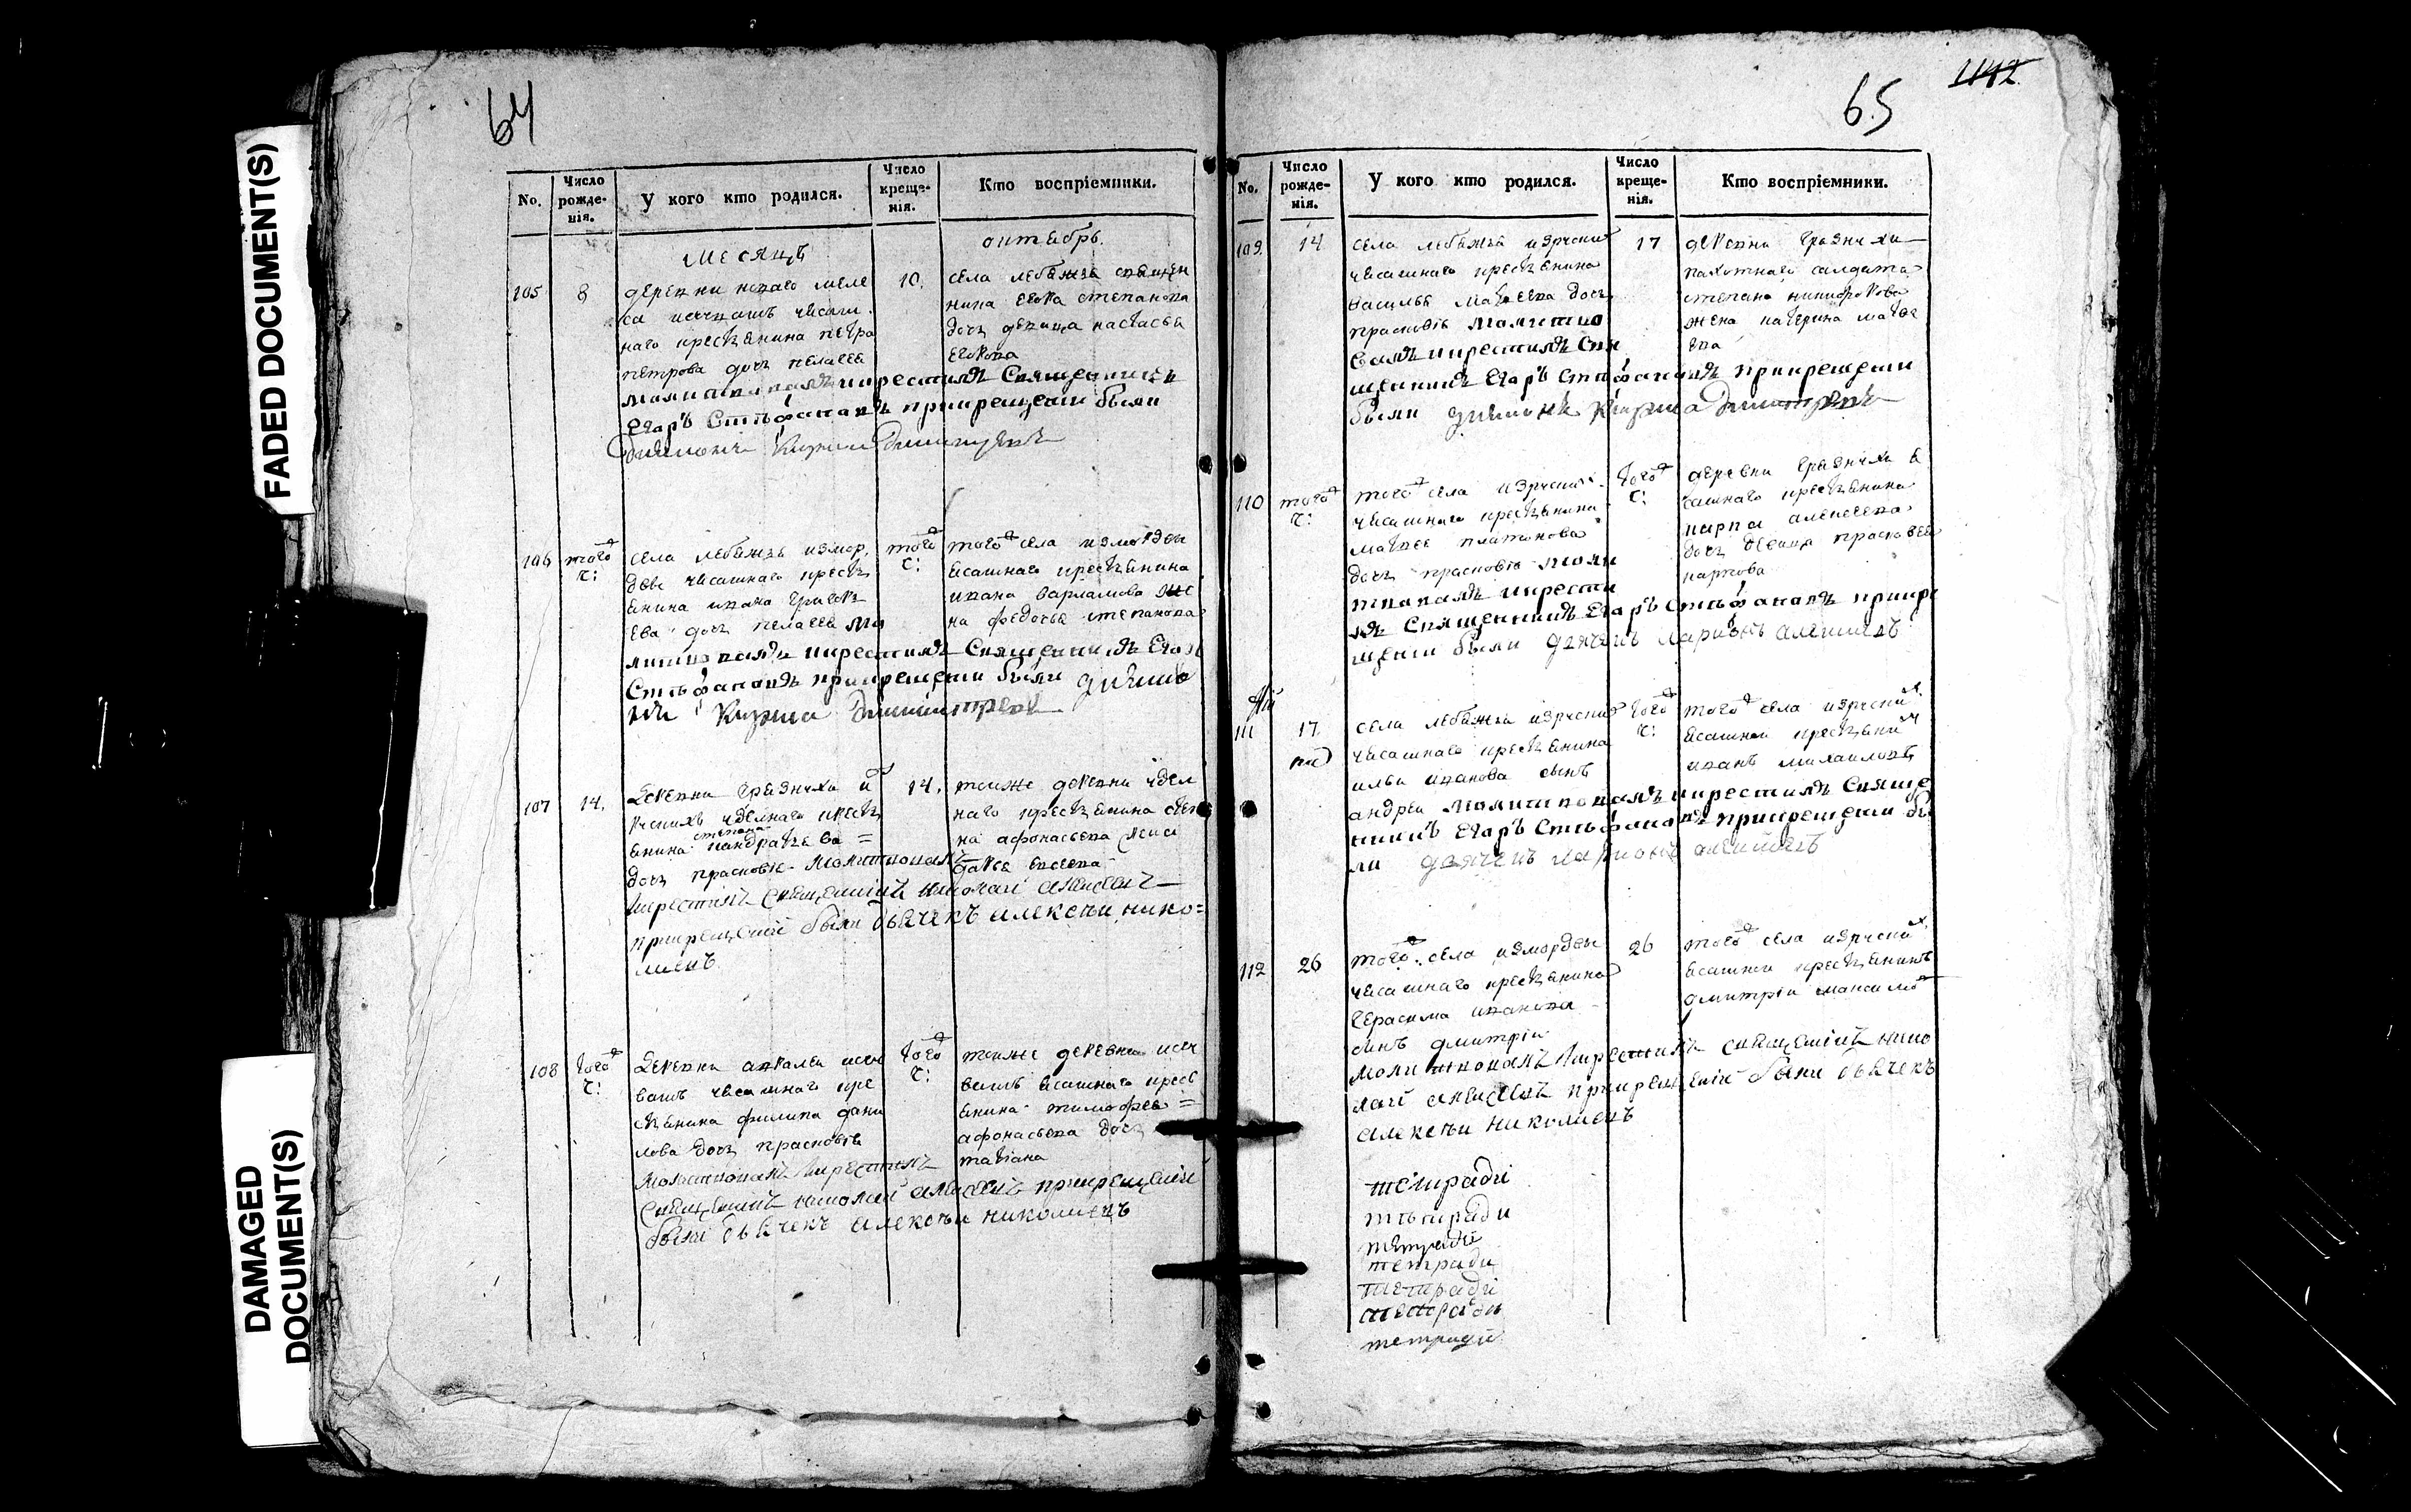 FADED DOCUMENT(S)
DAMAGED
DOCUMENT(S)
64
No.
Число рожде-нія.
У кого кто родился.
Число креще-нія.
Кто воспріемники.
месяцъ
октябрь.
105
8
деревни новаго меле
са ... чуваш ясаш
наго крестьянина петра
петрова дочь пелагея
молитвовалъ и крестилъ Священникъ
Егоръ Стефановъ при крещении были
дьяконъ Кузма Димитревъ
10.
села лебяжья священ
ника егора степанова
дочь девица настасья
егорова
106
того ч:
села лебяжья измор
двы ясашнаго кресть
янина ивана григорь
ева дочь пелагея мо
литвовалъ и крестилъ Священникъ Егоръ
Стефановъ при крещении были дьяко
нъ Кузма Димитревъ
того ч:
того села измордвы
ясашнаго крестьянина
ивана варламова же
на федосья степанова
107
14.
деревни грязнухи
русскихъ уделнаго кресть
янина степана кандратьева
дочь прасковья молитвовалъ
и крестилъ священникъ николай алексеевъ
при крещении были дьячекъ алексеи нико=
лаевъ
14.
тоиже деревни удел
наго крестьянина
афонасьева
дарья
108
того ч:
деревни
ясашнаго кре
стьянина филипа дани
лова дочь прасковья
молитвовалъ и крестилъ
священникъ николай алексеевъ при крещении
были дьячекъ алексеи николаевъ
того ч:
тоиже деревни
ясашнаго кресть
янина тимофея =
афонасьева дочь
татiана
65
1142
No.
Число рожде-нія.
У кого кто родился.
Число креще-нія.
Кто воспріемники.
109.
14
села лебяжья изруских
ясашнаго крестьянина
василья матвеева дочь
прасковья молитво
валъ и крестилъ Свя
щенникъ Егоръ Стефановъ при крещении
были дьяконъ Кузма Димитревъ
17
деревни грязнухи
пахотнаго салдата
степана никифорова
жена катерина матве
ева
110
того ч:
того села изруских
ясашнаго крестьянина
матвея платонова
дочь прасковья моли
твовалъ и крести
лъ Священникъ Егоръ Стефановъ при кре
щении были дьячекъ ларионъ алексеевъ
того ч:
деревни грязнухи я
сашнаго крестьянина
карпа алексеева
дочь девица прасковья
карпова
111
17
села лебяжья изруских
ясашнаго крестьянина
ильи иванова сынъ
андреи молитвовалъ и крестилъ Свяще
нникъ Егоръ Стефановъ при крещении бы
ли дьячекъ ларионъ алексеевъ
того ч:
того села изруских
ясашнои крестьянин
иванъ михаиловъ
112
26
того села измордвы
ясашнаго крестьянина
герасима иванова
сынъ дмитрiи
молитвовалъ и крестилъ священникъ нико
лай алексеевъ при крещении были дьячекъ
алексеи николаевъ
26
того села изруских
ясашнои крестьянинъ
дмитрiи максимо
тетради
тетради
тетради
тетради
тетради
тетради
тетради